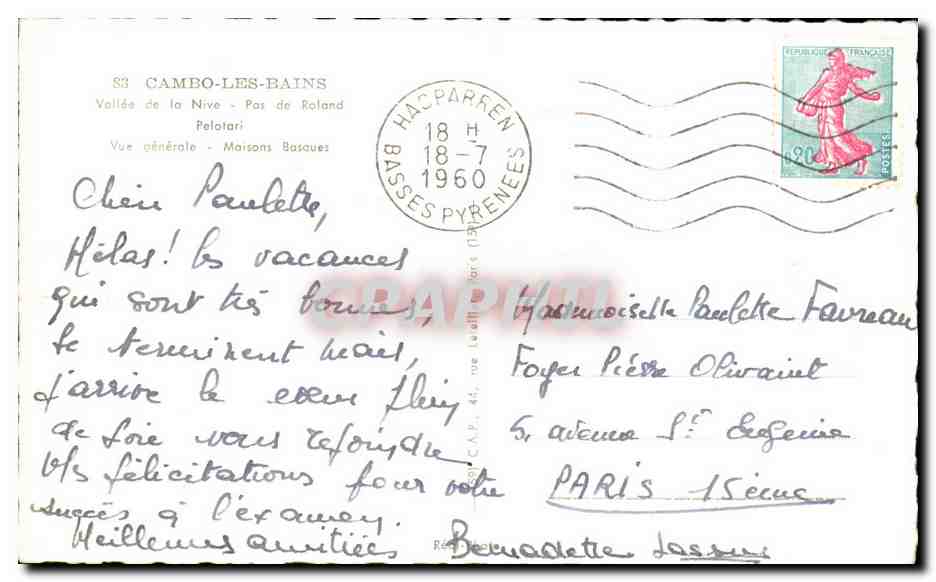 S3 CAMBO-LES-BAINS
Vallée de la Nive - Pas de Roland
Pelotari
Vue générale - Maisons Basques
HASPARREN
18 H
18-7
1960
BASSES PYRENEES
REPUBLIQUE FRANÇAISE
0,20
POSTES
Chère Paulette,
Hélas! les vacances
qui sont très bonnes,
se terminent mais,
j'arrive le cœur plein
de joie vous rejoindre
Mes félicitations pour votre
succès à l'examen.
Meilleures amitiées Bernadette Lassus
Mademoiselle Paulette Favreau
Foyer Pierre Olivaint
5, avenue St Eugénie
PARIS 15ème
C.A.P., 44, rue Paris (15e)
CPAPHIL